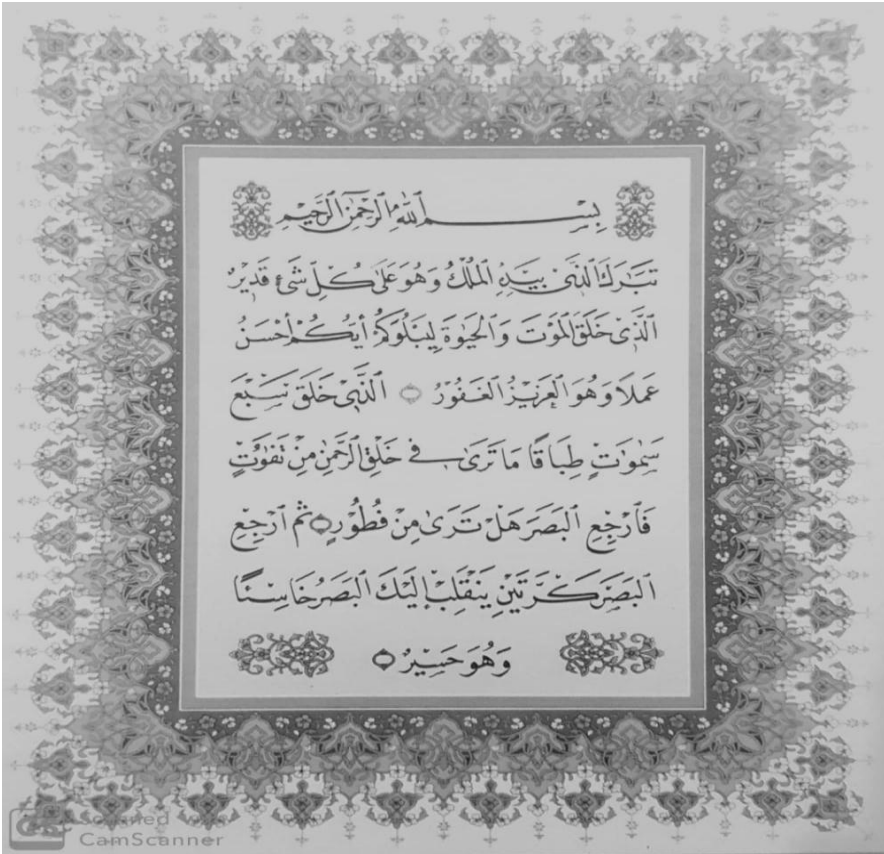 بِسْمِ ٱللَّهِ ٱلرَّحْمَٰنِ ٱلرَّحِيمِ
تَبَٰرَكَ ٱلَّذِى بِيَدِهِ ٱلْمُلْكُ وَهُوَ عَلَىٰ كُلِّ شَىْءٍ قَدِيرٌ
ٱلَّذِى خَلَقَ ٱلْمَوْتَ وَٱلْحَيَوٰةَ لِيَبْلُوَكُمْ أَيُّكُمْ أَحْسَنُ
عَمَلًا وَهُوَ ٱلْعَزِيزُ ٱلْغَفُورُ ۝ ٱلَّذِى خَلَقَ سَبْعَ
سَمَٰوَٰتٍ طِبَاقًا مَا تَرَىٰ فِى خَلْقِ ٱلرَّحْمَٰنِ مِنْ تَفَٰوُتٍ
فَٱرْجِعِ ٱلْبَصَرَ هَلْ تَرَىٰ مِنْ فُطُورٍ ۝ ثُمَّ ٱرْجِعِ
ٱلْبَصَرَ كَرَّتَيْنِ يَنْقَلِبْ إِلَيْكَ ٱلْبَصَرُ خَاسِئًا
وَهُوَ حَسِيرٌ ۝
CS Scanned with
CamScanner